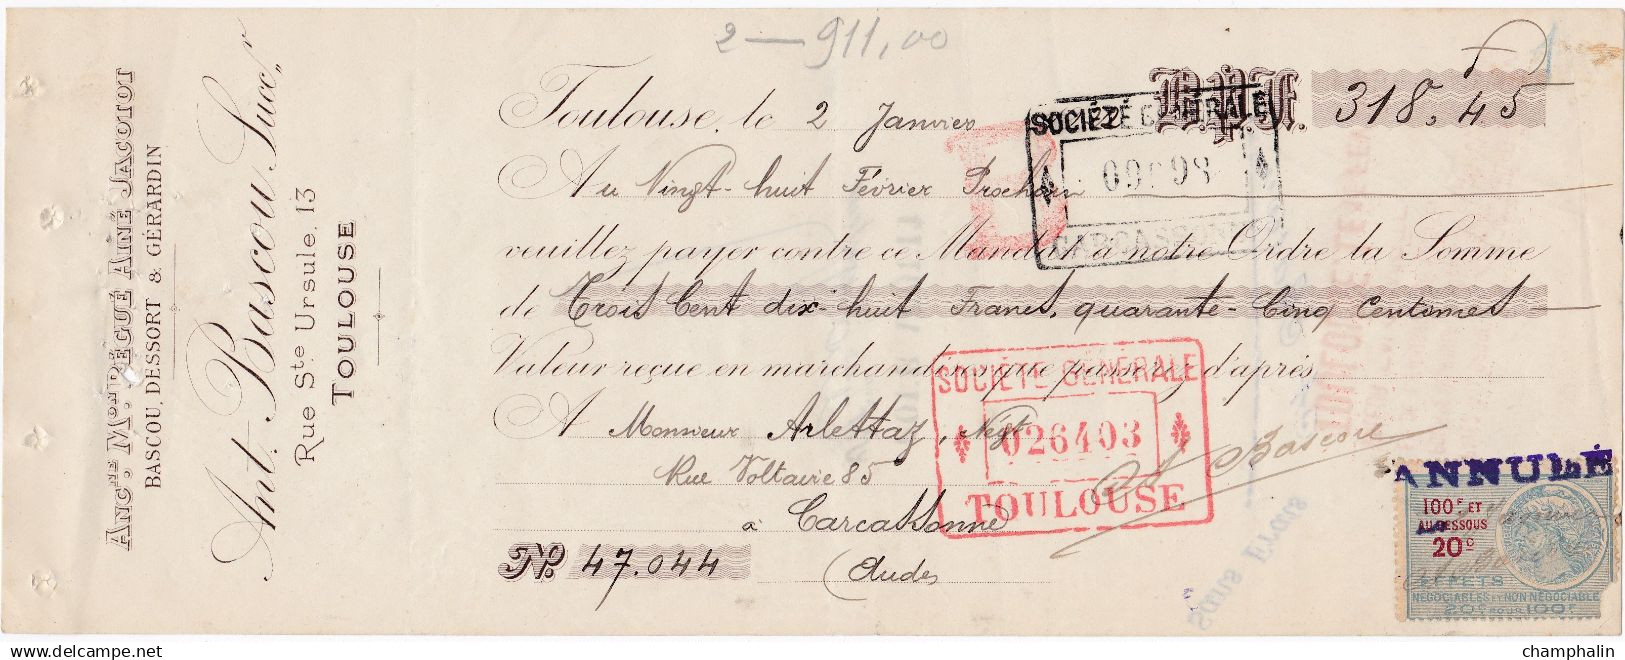 2 — 911,00
ANC.NE M.ON RÉGUÉ AINÉ JACOTOT
BASCOU, DESSORT & GÉRARDIN
Ant. Bascou Succ.r
Rue Ste Ursule, 13
TOULOUSE
Toulouse, le 2 Janvier B.P.F. 318,45
Au Vingt-huit Février Prochain
veuillez payer contre ce Mandat à notre Ordre la Somme
de Trois Cent dix-huit Francs, quarante-Cinq Centimes
Valeur reçue en marchandises que passerez d'après
A Monsieur Arlettaz, Negt
Rue Voltaire 85
à Carcassonne
(Aude)
No. 47.044
SOCIÉTÉ GÉNÉRALE
CARCASSONNE
SOCIÉTÉ GÉNÉRALE
026403
TOULOUSE
A Bascou
ANNULÉ
100F ET
AU DESSOUS
20c
EFFETS
NÉGOCIABLES ET NON NÉGOCIABLE
20c POUR 100F
Sans Frais
champhalin